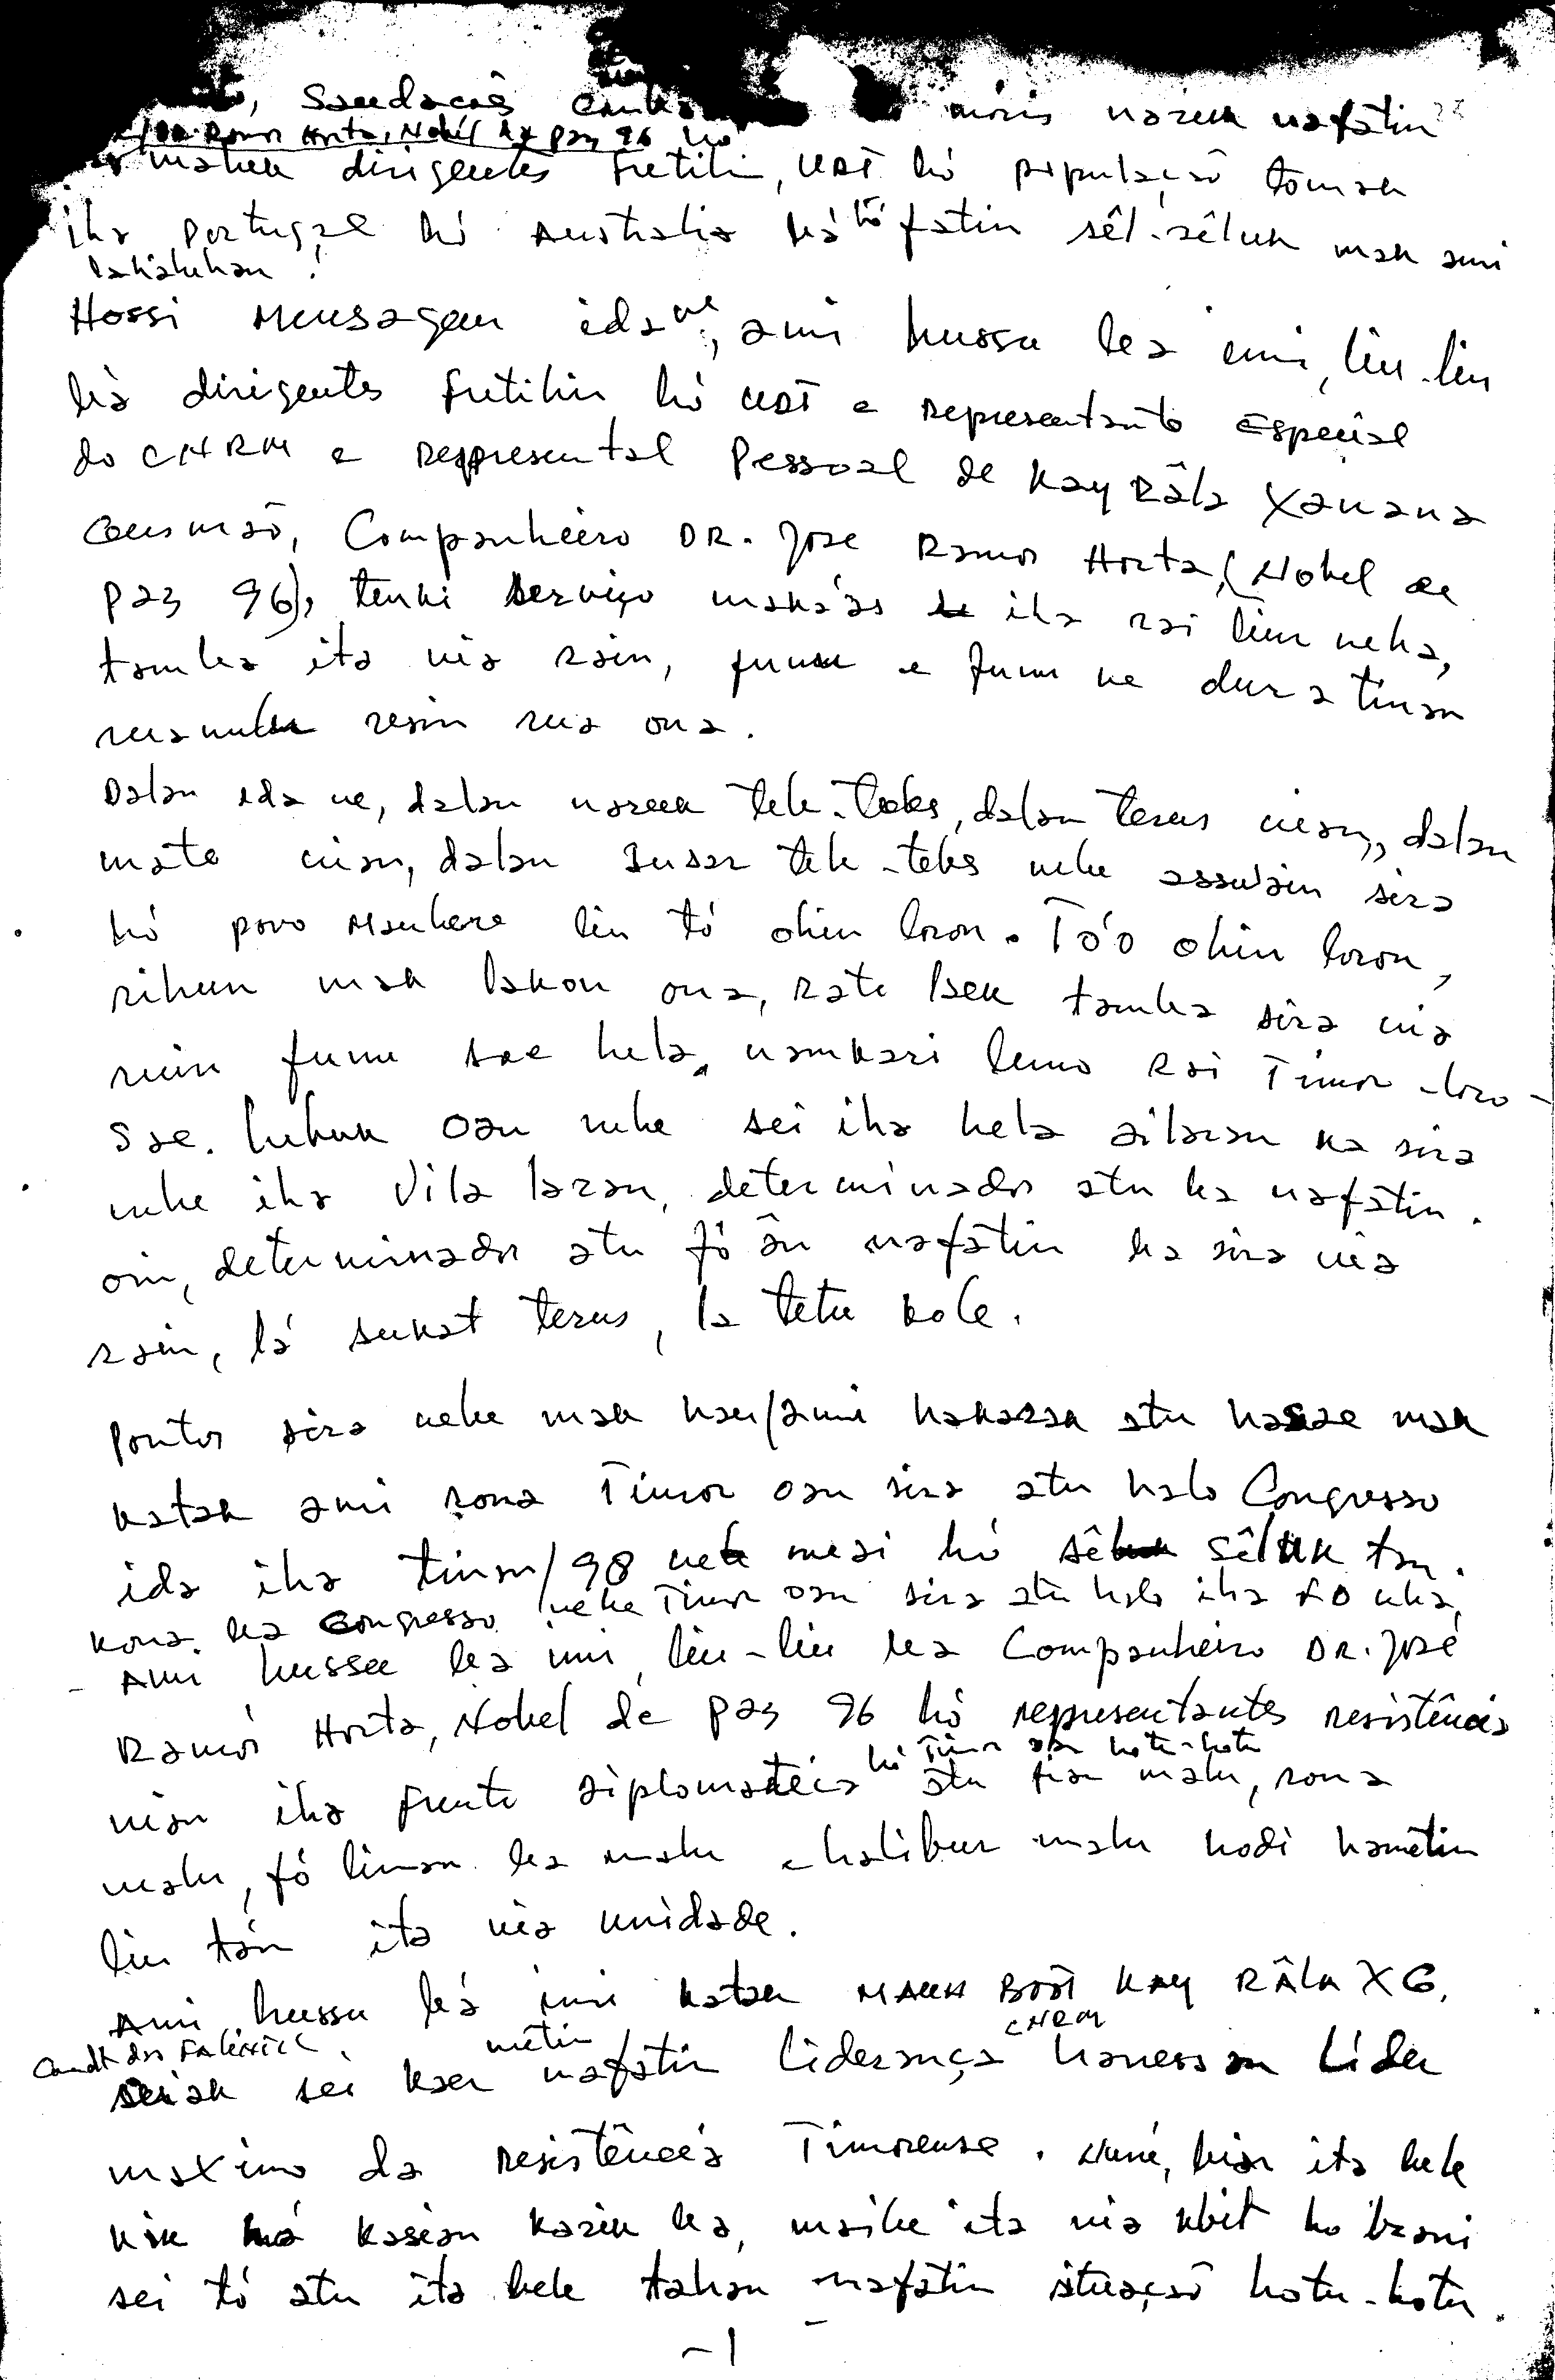 Saudacões moris naruk nafatin
Ramos Horta, Nobel da paz 96 ho
maluk dirigentes Fretilin, UDT hó populaçaõ tomak
iha Portugal hó Australia há hó fatin sêl-sêluk mak ami
lahaluhan!
Hossi Mensagem ida ne, ami hussu ba imi, liu-liu
bá dirigentes Fretilin hó UDT e representante Especial
do CNRM e representat Pessoal de Kay Râla Xanana
Gusmaõ, Companheiro DR. Jose Ramos Horta, (Nobel de
paz 96), tenki serviço maka'as iha rai liur neba,
tamba ita nia rain, funu e funu ne dura tinan
ruanulu resin rua ona.
Dalan ida ne, dalan naruk teb-tebes, dalan terus nian, dalan
mate nian, dalan susar teb-tebes nebe assuwain sira
hó povo Maubere liu tó ohin loron. To'o ohin loron,
rihun mak lakon ona, rate laek tamba sira nia
ruin funu sae hela, namkari lemo Rai Timor-loro-
sae. lubuk oan nebe sei iha hela ailaran ka sira
nebe iha Vila laran, determinados atu ba nafatin.
oin, determinados atu fó ân nafatin ba sira nia
rain, lá sukat terus, la tetu kole.
Pontos sira nebe mak hau/ami hakarak atu hasae mak
katak ami rona Timor oan sira atu halo Congresso
ida iha tinan/98 nebe mai hó sêluk tan.
kona ba Congresso nebe Timor oan sira atu halo iha
- Ami hussu ba imi, liu-liu ba Companheiro DR. José
Ramos Horta, Nobel de paz 96 hó representantes resistência
nian iha frente diplomatica hó Timor oan hotu-hotu atu fiar malu, rona
malu, fó liman ba malu e halibur malu hodi hametin
liu tán ita nia unidade.
Ami hussu bá imi katak MAUN BOOT KAY RÂLA XG,
Cmdt das FALINTIL
sei kaer metin nafatin liderança CNRM hanessan Líder
maximo da resistência Timorense. Nuné, bian ita bele
kiik ká kasian karik ba, maibe ita nia kbit ho brani
sei tó atu ita bele tahan nafatin situaçaõ hotu-hotu.
- 1